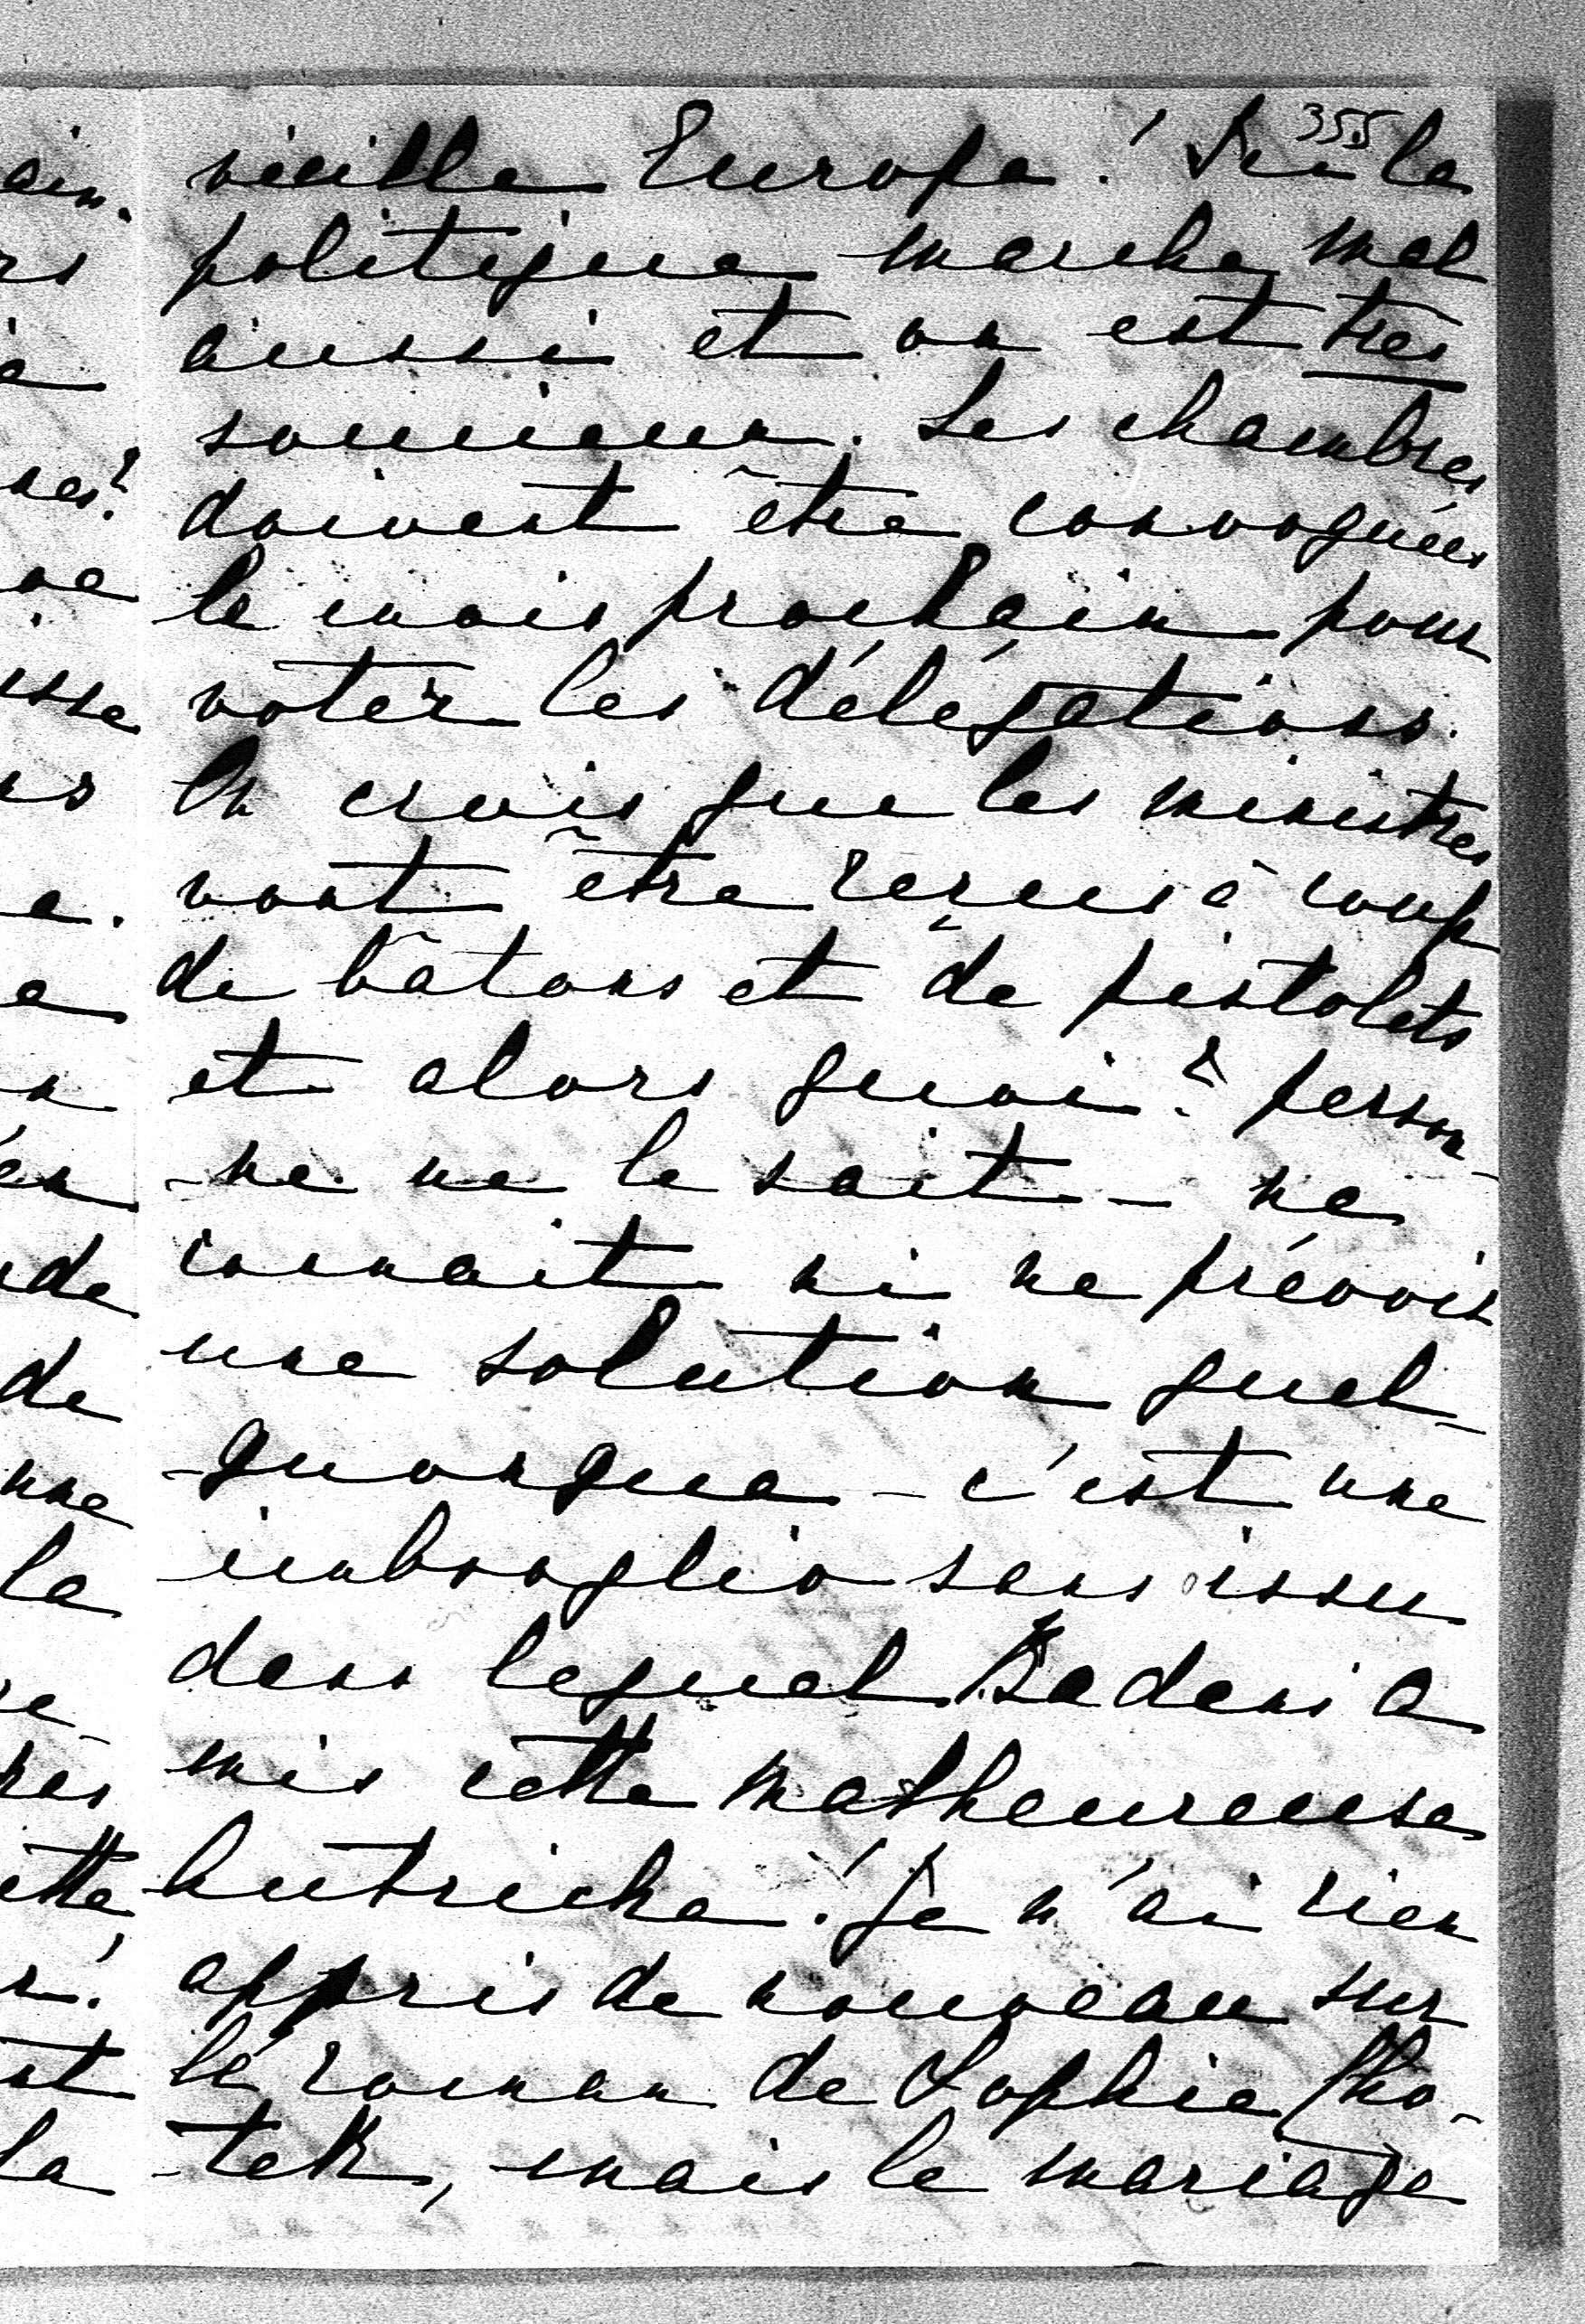 355
vieille Europe! Ici la
politique marche mal
aussi et on est très
soucieux. Les chambres
doivent être convoquées
le mois prochain pour
voter les délégations.
On crois que les ministres
vont être reçus à coup
de bâtons et de pistolets
et alors quoi? person-
-ne ne le sait - ne
connait ni ne prévoit
une solution quel-
-quonque - c'est une
imbroglio sans issu
dans lequel Badeni a
mis cette malheureuse
Autriche! Je n'ai rien
appris de nouveau sur
le roman de Sophie Cho-
-tek, mais le mariage